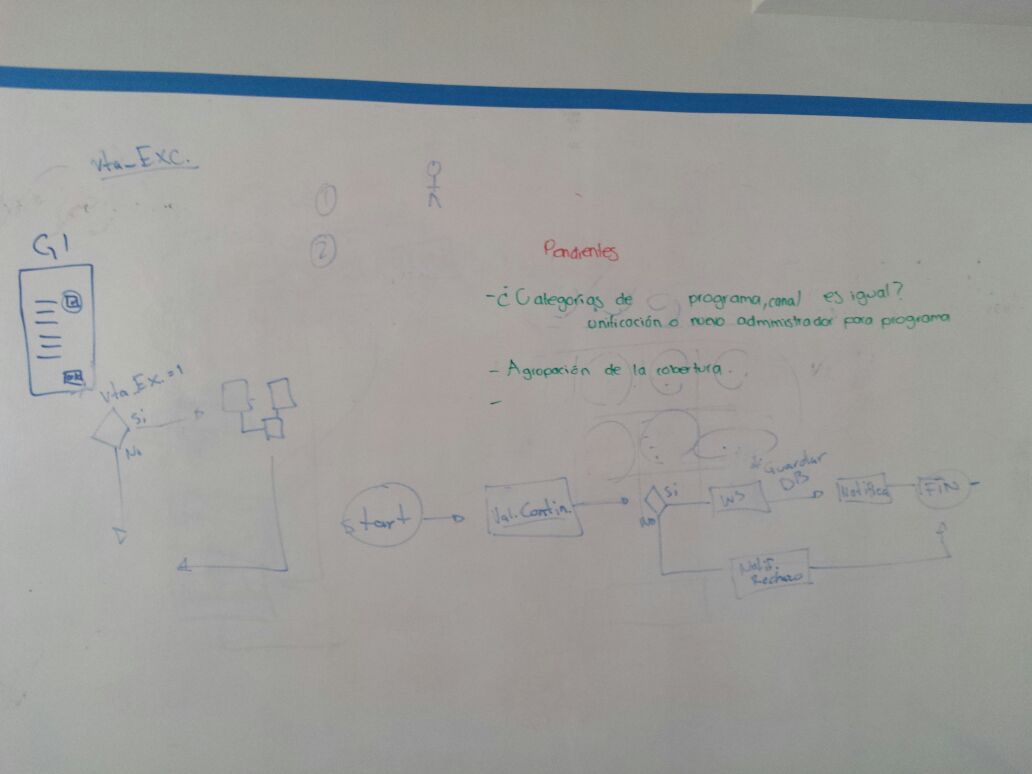 vta_Exc.
1
2
G1
Pendientes
-¿Categorías de programa, canal es igual?
unificación o nuevo administrador para programa
- Agrupación de la cobertura.
-
vta_Ex.=1
Si
No
start
Val. Contin.
Si
No
WS
* Guardar
DB
Notifica
FIN
Notif.
Rechazo